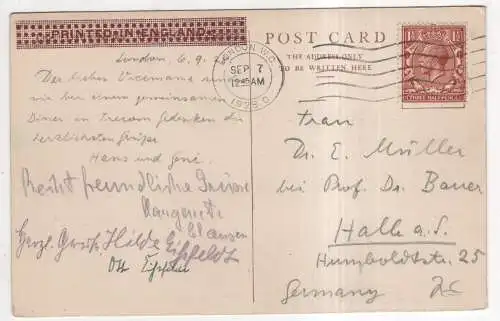 PRINTED IN ENGLAND
London, 6.9.
Der lieben
wir bei einem gemeinsamen
Diner in Treuem gedenken die
herzlichsten Grüsse
Hans und
Recht freundliche Grüsse
Margarete
Clausen
Herzl. Gruß, Hilde Eißfeldt
Otto Eißfeldt
POST CARD
THE ADDRESS ONLY
TO BE WRITTEN HERE
LONDON W.C.
SEP 7
12.45AM
1928
THREE HALFPENCE
Frau
Dr. E. Müller
bei Prof. Dr. Bauer
Halle a. S.
Humboldtstr. 25
Germany